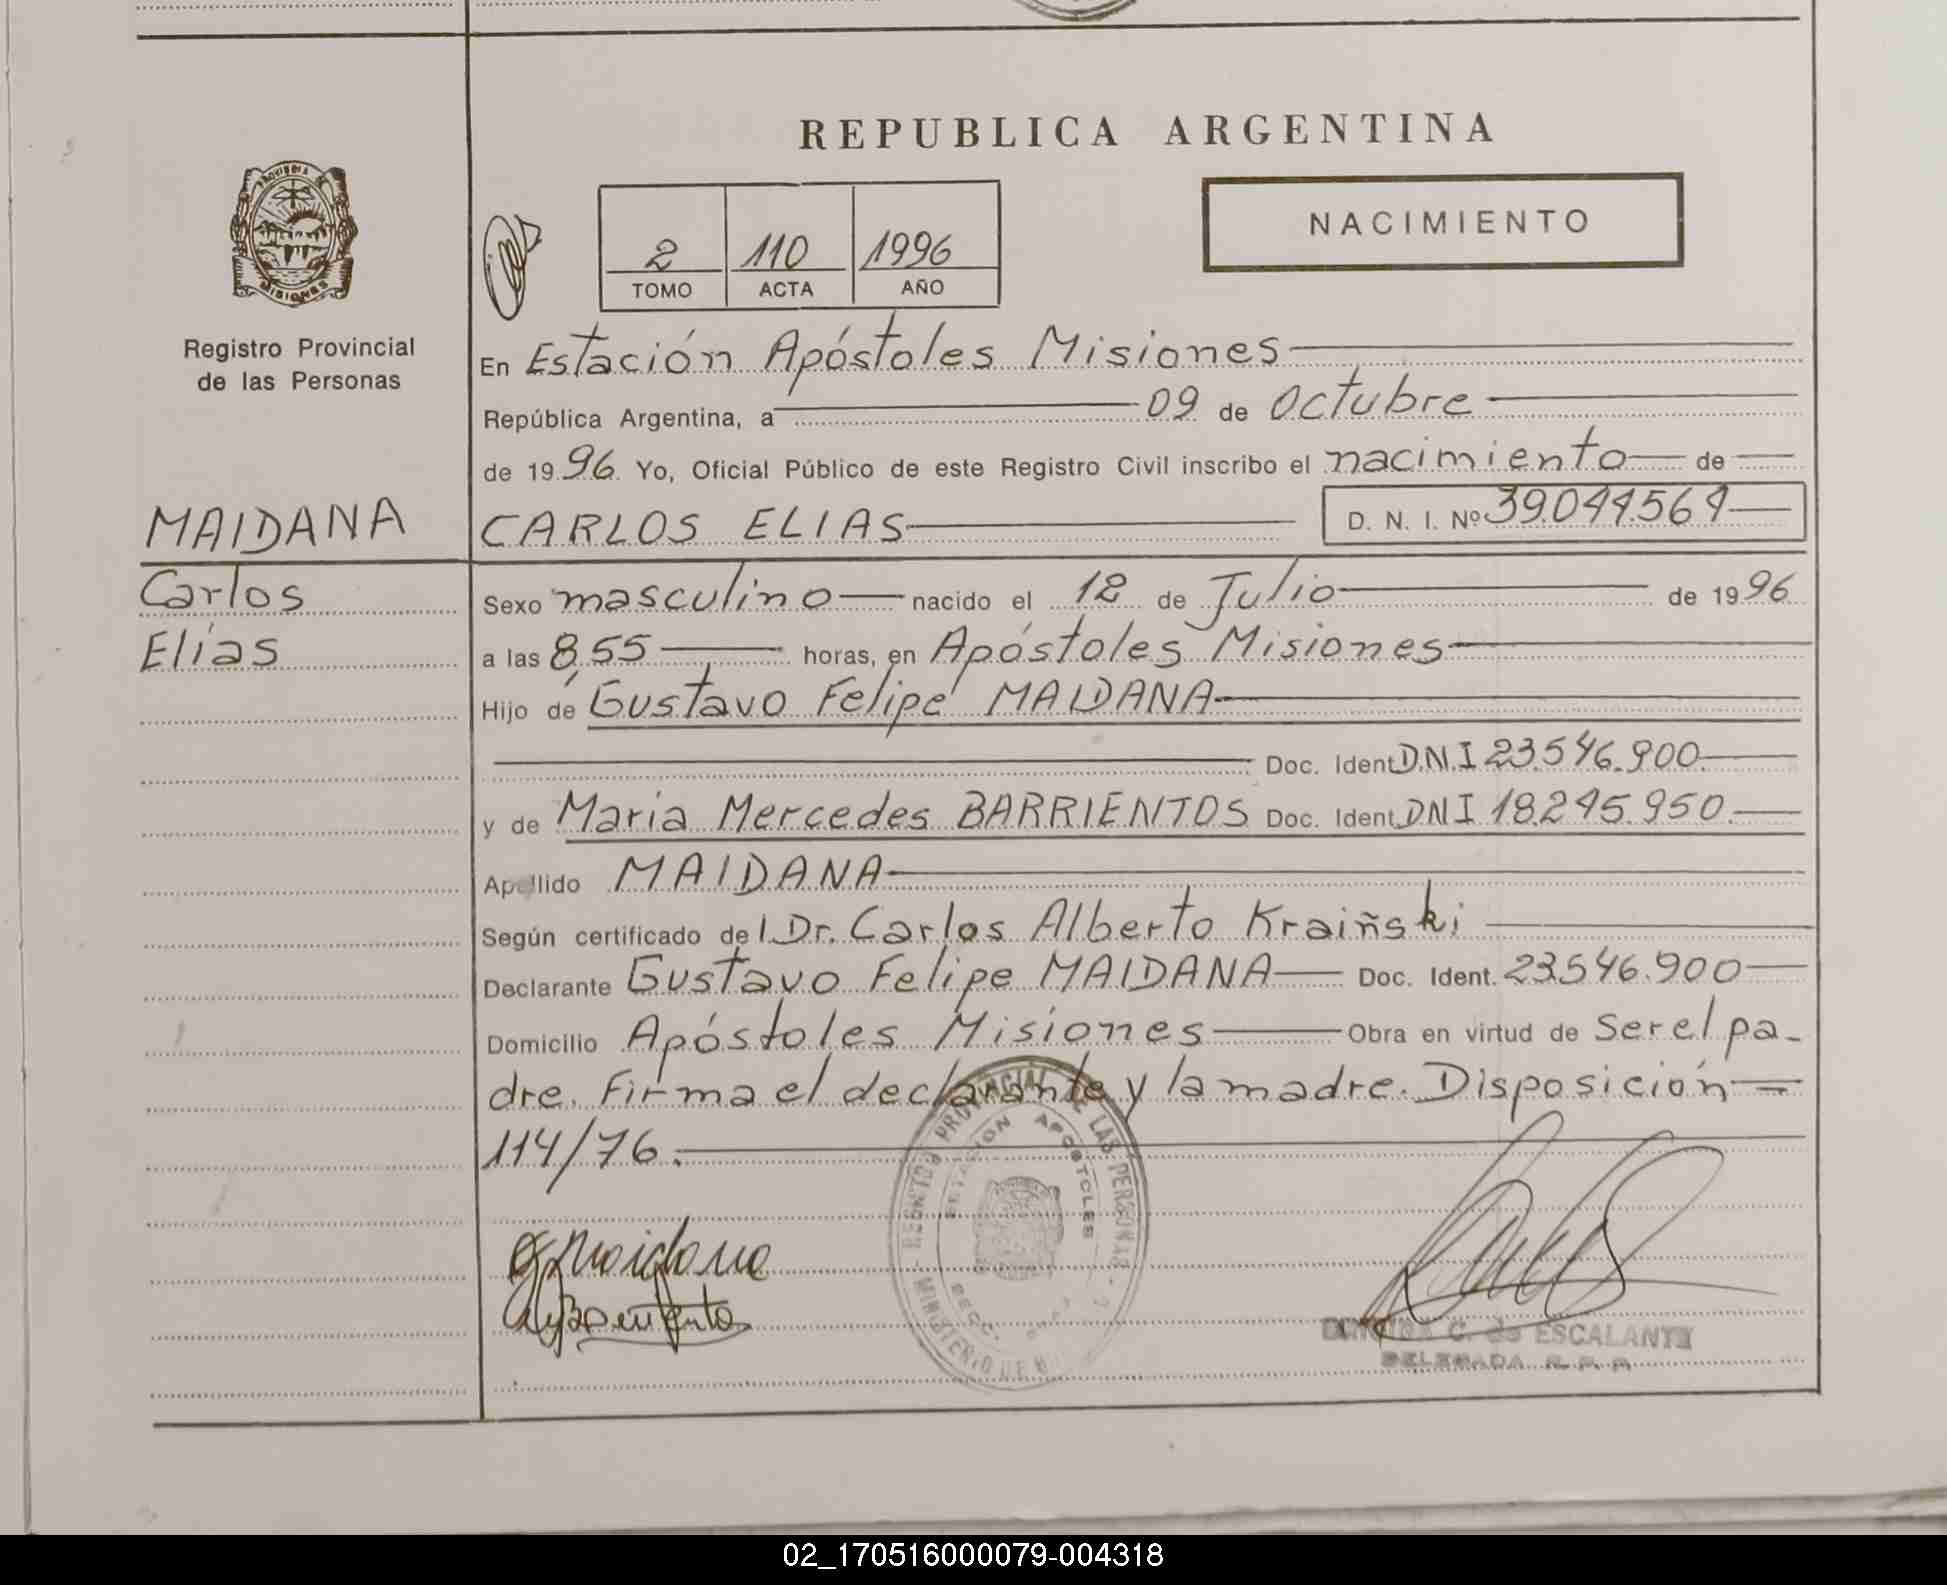 REPUBLICA ARGENTINA
PROVINCIA DE
MISIONES
Registro Provincial
de las Personas
2 110 1996
TOMO ACTA AÑO
NACIMIENTO
En Estación Apóstoles Misiones
República Argentina, a 09 de Octubre
de 1996. Yo, Oficial Público de este Registro Civil inscribo el nacimiento de
MAIDANA CARLOS ELIAS D. N. I. Nº 39.044.564
Carlos
Elías
Sexo masculino nacido el 12 de Julio de 1996
a las 8,55 horas, en Apóstoles Misiones
Hijo de Gustavo Felipe MAIDANA
Doc. Ident D.N.I 23.546.900
y de Maria Mercedes BARRIENTOS Doc. Ident DNI 18.245.950.
Apellido MAIDANA
Según certificado del Dr. Carlos Alberto Kraiñski
Declarante Gustavo Felipe MAIDANA Doc. Ident. 23.546.900
Domicilio Apóstoles Misiones Obra en virtud de ser el pa-
dre. Firma el declarante y la madre. Disposición
114/76.
REGISTRO PROVINCIAL DE LAS PERSONAS
ESTACION APOSTOLES
C. de ESCALANTE
DELEGADA R. P. P.
02_170516000079-004318